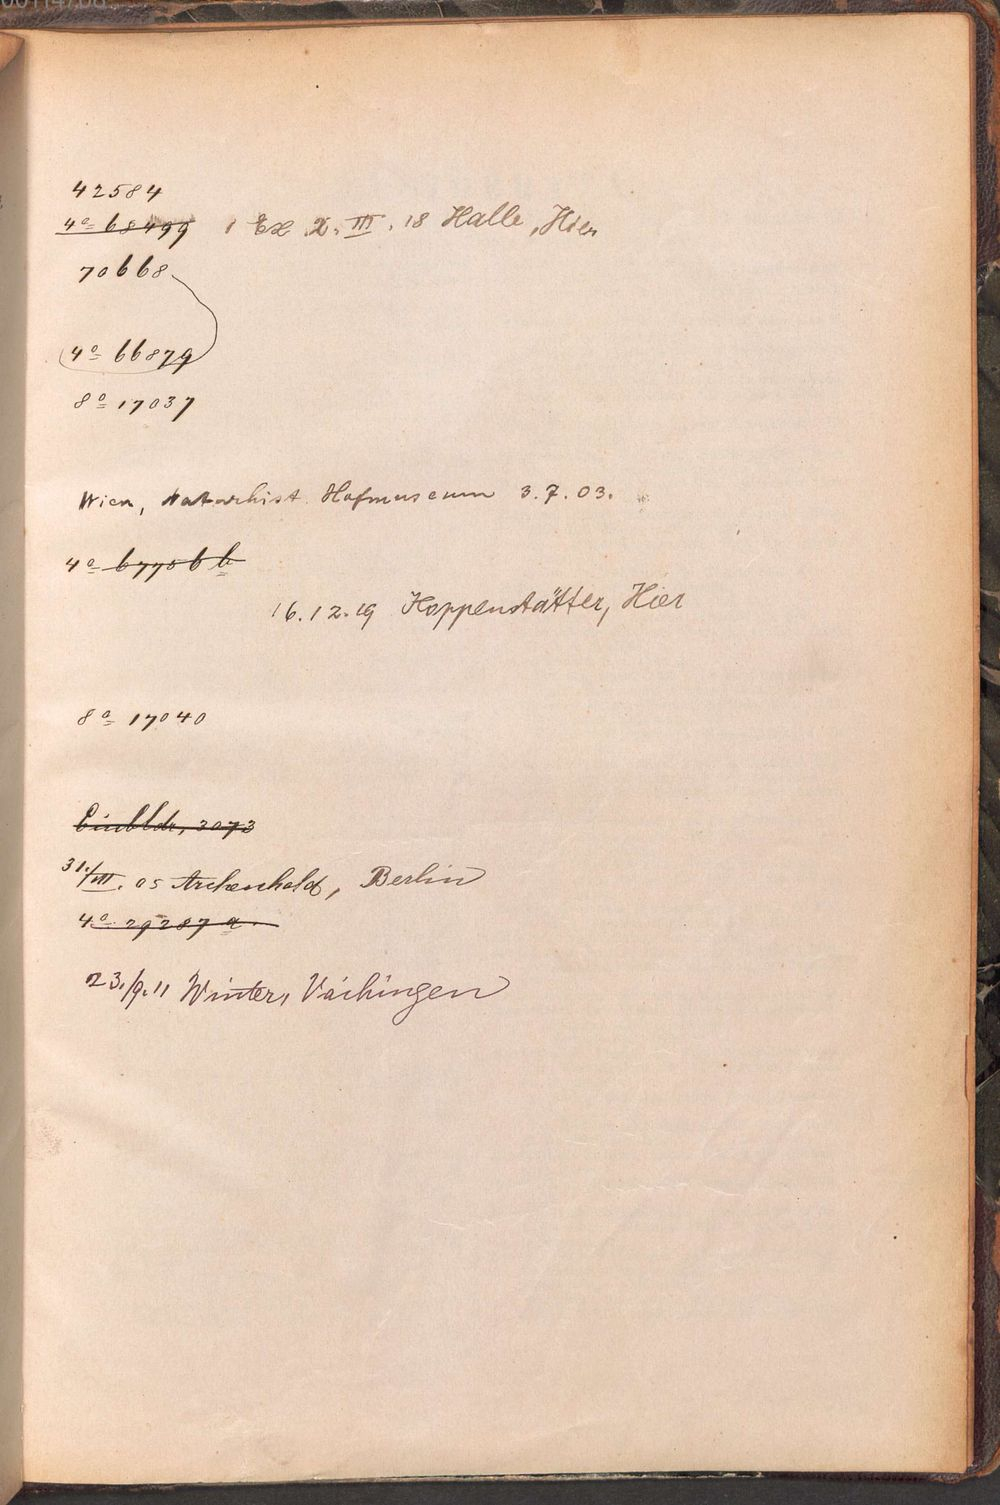 42584
4º 68499 1 Ex 2. III. 18 Halle, Hier
70668
4º 66879
8º 17037
Wien, Naturhist Hofmuseum 3.7.03.
4º 67706 b
16.12.19 Hoppenstätter, Hier
8º 17040
Einbldr, 3073
31./III. 05 Archenhold, Berlin
4º 29287 a.
23./9.11 Winter, Vaihingen